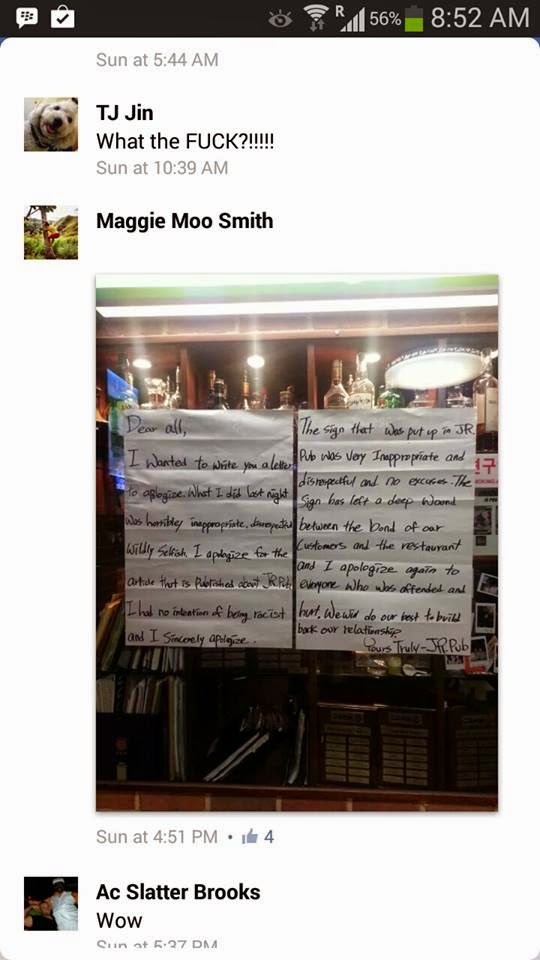 R
56%
8:52 AM
Sun at 5:44 AM
TJ Jin
What the FUCK?!!!!!
Sun at 10:39 AM
Maggie Moo Smith
Dear all,
I wanted to write you a letter
to apologize. What I did last night
was horribley inappropriate, disrespected
Wildly Selfish. I apologize for the
article that is Published about JR.Pub.
I had no intention of being racist
and I Sincerely apologize.
The Sign that was put up in JR
Pub was very Inappropriate and
disrespectful and no excuses. The
Sign has left a deep wound
between the bond of our
Customers and the restaurant
and I apologize again to
everyone who was offended and
hurt. We will do our best to build
back our relationship
Yours Truly - JR.Pub
연구
Sun at 4:51 PM • 4
Ac Slatter Brooks
Wow
Sun at 5:37 PM